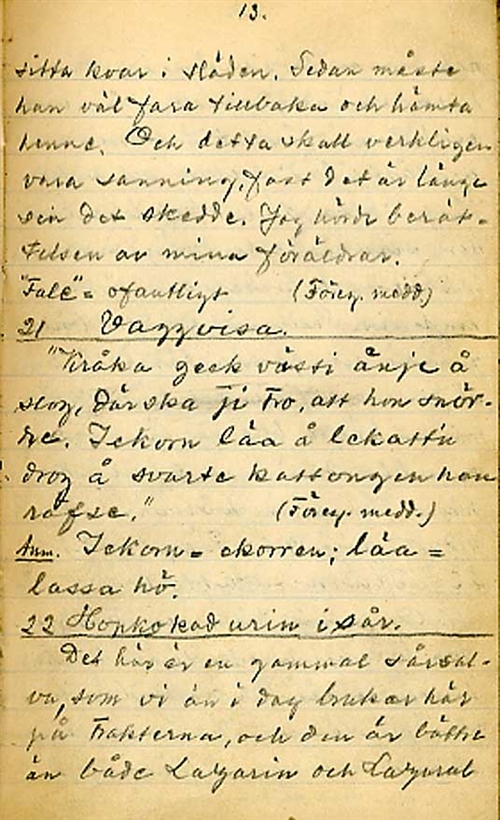 13.
sitta kvar i släden. Sedan måste
han väl fara tillbaka och hämta
henne. Och detta skall verkligen
vara sanning, fast det är länge
sen det skedde. Jag hörde berät-
telsen av mina föräldrar.
"Fale" = ofantligt (Förey. medd.)
21 Vaggvisa.
"Kråka geck västi änje å
slog, där ska ji tro, att hon snör-
de. Ickorn låa å lekatt'n
drog å svarte kattongen han
räfse." (Förey. medd.)
Anm. Ickorn = ekorren; låa =
lassa hö.
22 Hopkokad urin i sår.
Det här är en gammal sårsal-
va, som vi än i dag brukar här
på trakterna, och den är bättre
än både Lazarin och Lazarol